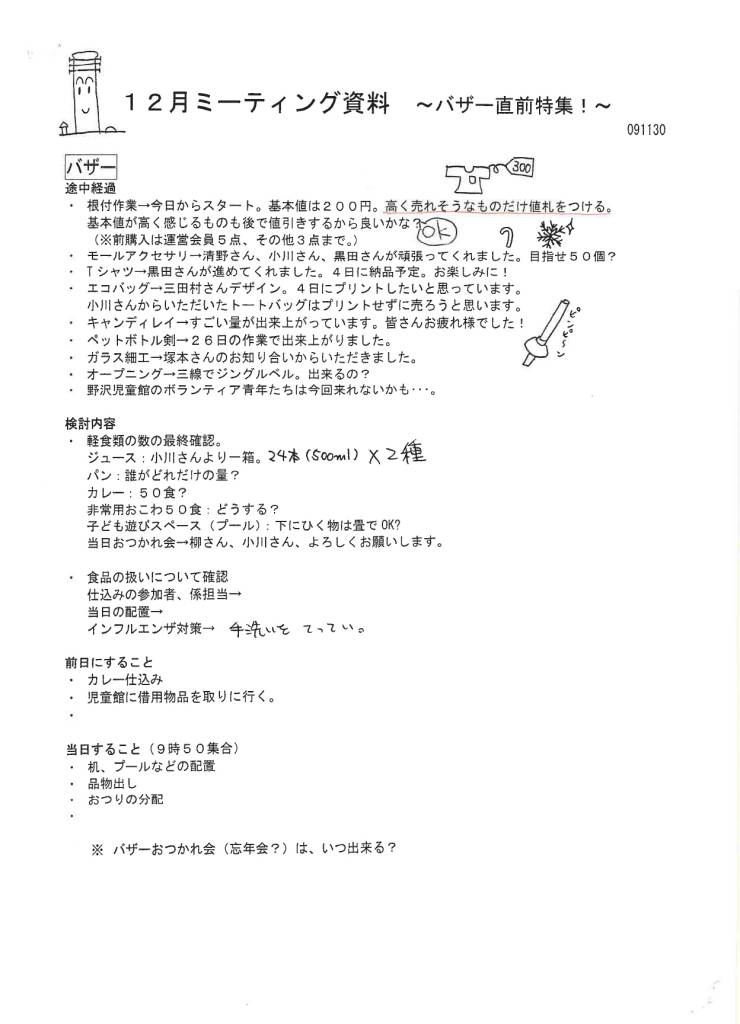 １２月ミーティング資料　～バザー直前特集！～
091130
バザー
途中経過
300
・ 根付作業→今日からスタート。基本値は２００円。高く売れそうなものだけ値札をつける。
基本値が高く感じるものも後で値引きするから良いかな？ OK
（※前購入は運営会員５点、その他３点まで。）
・ モールアクセサリ→清野さん、小川さん、黒田さんが頑張ってくれました。目指せ５０個？
・ Ｔシャツ→黒田さんが進めてくれました。４日に納品予定。お楽しみに！
・ エコバッグ→三田村さんデザイン。４日にプリントしたいと思っています。
小川さんからいただいたトートバッグはプリントせずに売ろうと思います。
・ キャンディレイ→すごい量が出来上がっています。皆さんお疲れ様でした！
ピンピーン
・ ペットボトル剣→２６日の作業で出来上がりました。
・ ガラス細工→塚本さんのお知り合いからいただきました。
・ オープニング→三線でジングルベル。出来るの？
・ 野沢児童館のボランティア青年たちは今回来れないかも･･･。
検討内容
・ 軽食類の数の最終確認。
ジュース：小川さんより一箱。24本(500ml) × 2種
パン：誰がどれだけの量？
カレー：５０食？
非常用おこわ５０食：どうする？
子ども遊びスペース（プール）：下にひく物は畳でOK?
当日おつかれ会→柳さん、小川さん、よろしくお願いします。
・ 食品の扱いについて確認
仕込みの参加者、係担当→
当日の配置→
インフルエンザ対策→ 手洗いを てってい。
前日にすること
・ カレー仕込み
・ 児童館に借用物品を取りに行く。
・
当日すること（９時５０集合）
・ 机、プールなどの配置
・ 品物出し
・ おつりの分配
・
※ バザーおつかれ会（忘年会？）は、いつ出来る？